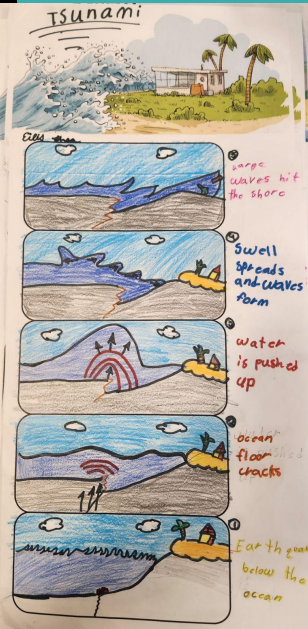 Tsunami
5
Large
waves hit
the shore
4
Swell
spreads
and waves
form
3
water
is pushed
up
2
ocean
floor
cracks
1
Earthquak
below the
ocean